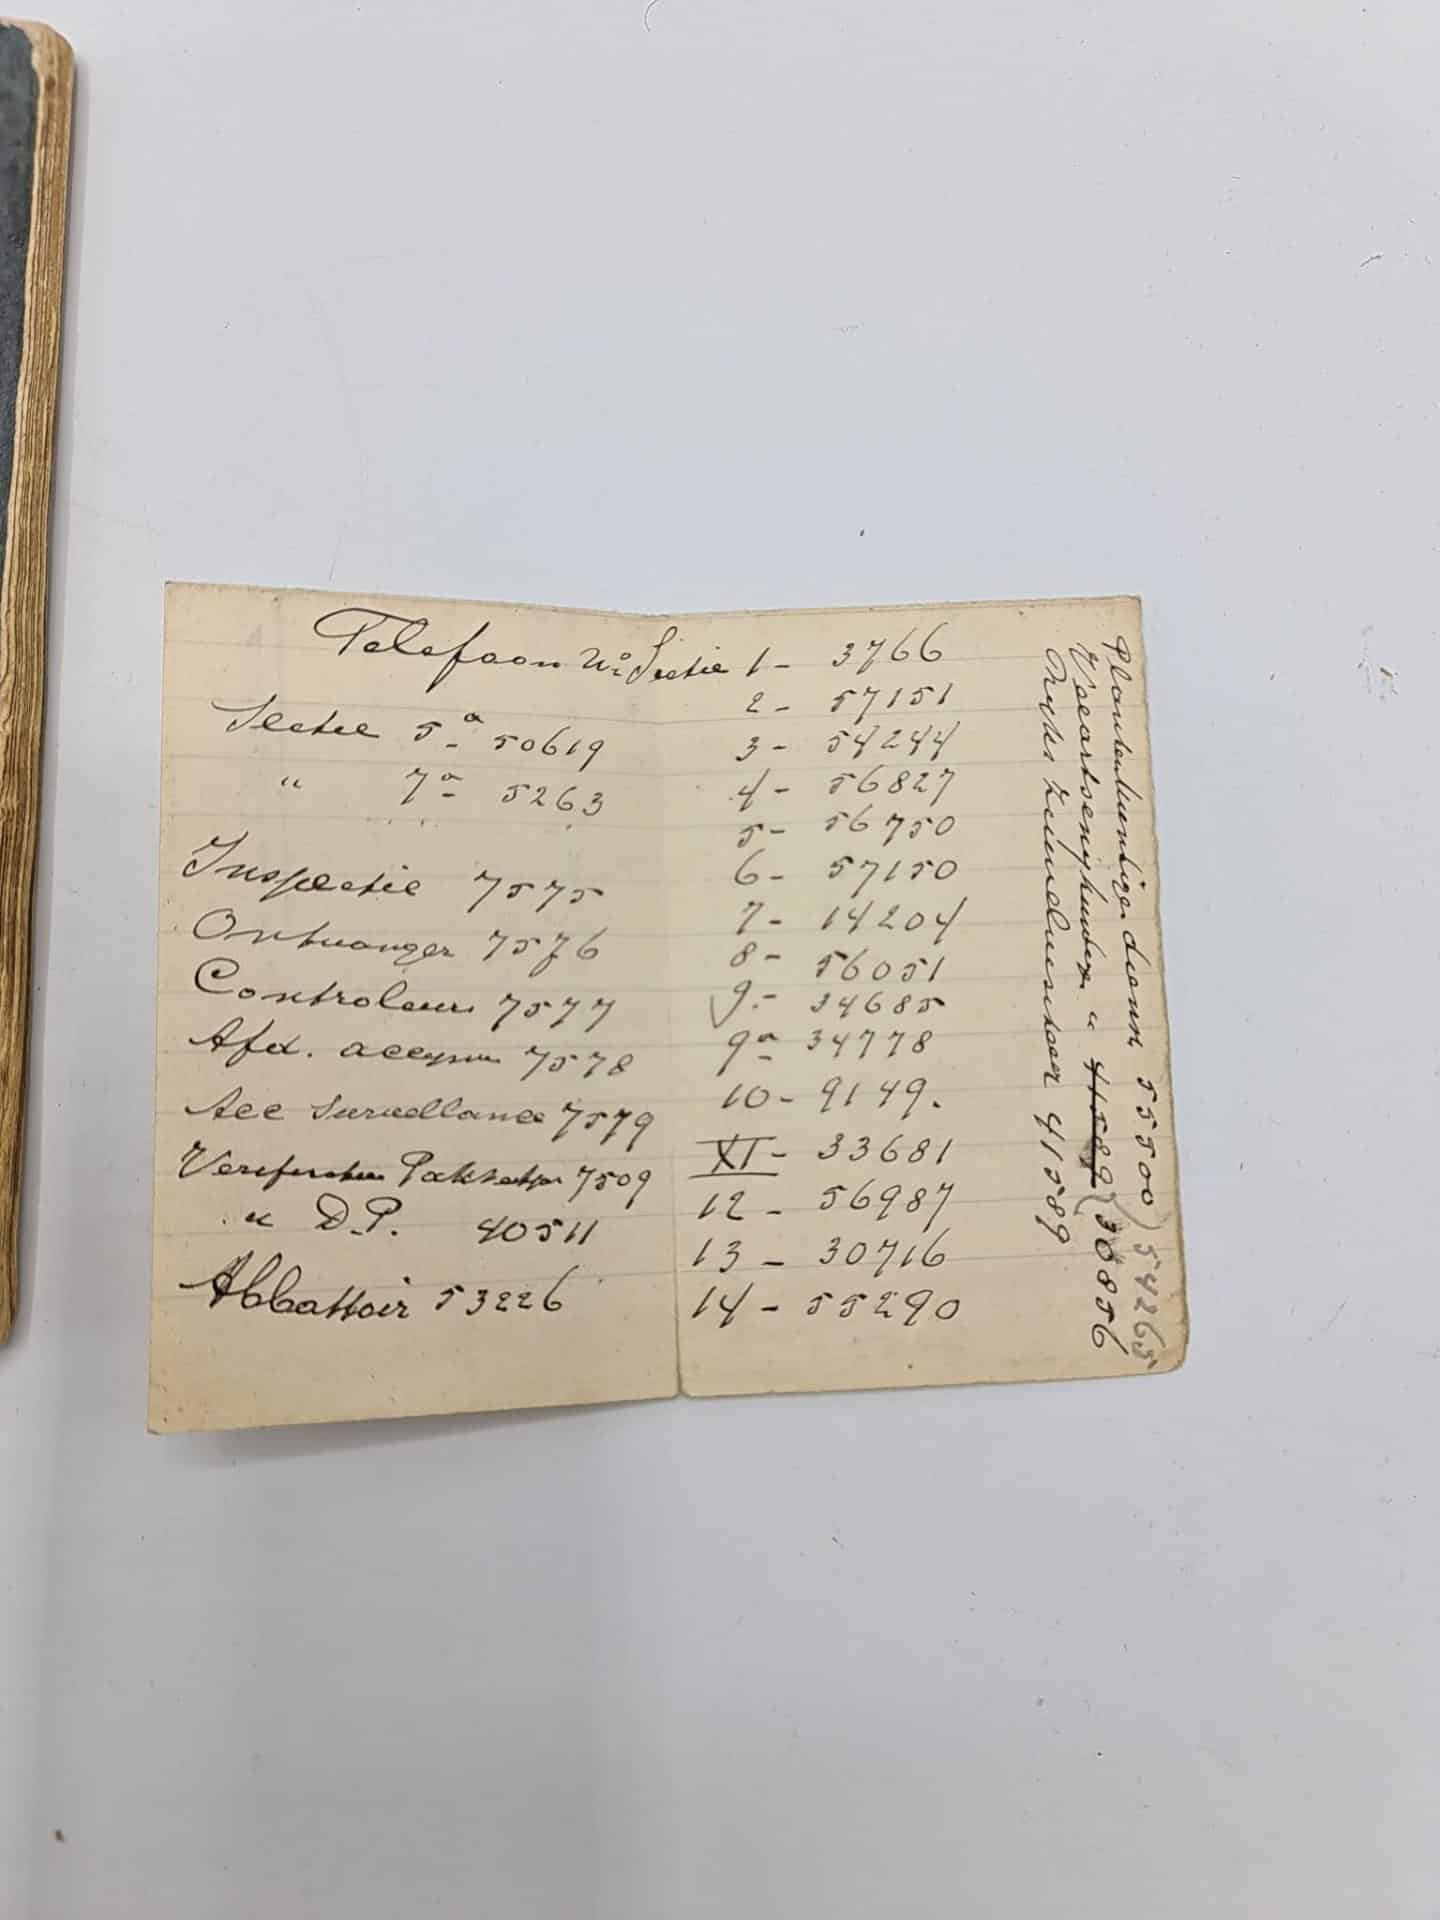 Telefoon No Sectie 1 - 3766
2 - 57151
3 - 54244
4 - 56827
5 - 56750
6 - 57150
7 - 14204
8 - 56051
9 - 34685
9a 34778
10 - 9149.
XI - 33681
12 - 56987
13 - 30716
14 - 55290
Sectie 5a 50619
" 7a 5263
Inspectie 7575
Ontvanger 7576
Controleur 7577
Afd. accynsen 7578
Acc Surveillance 7579
Verificatie 7509
" D.P. 40511
Abbattoir 53226
Plantenkundige dienst 55500) 54265
Veeartsenijkundige " 41589 (30856
Rijks 41589